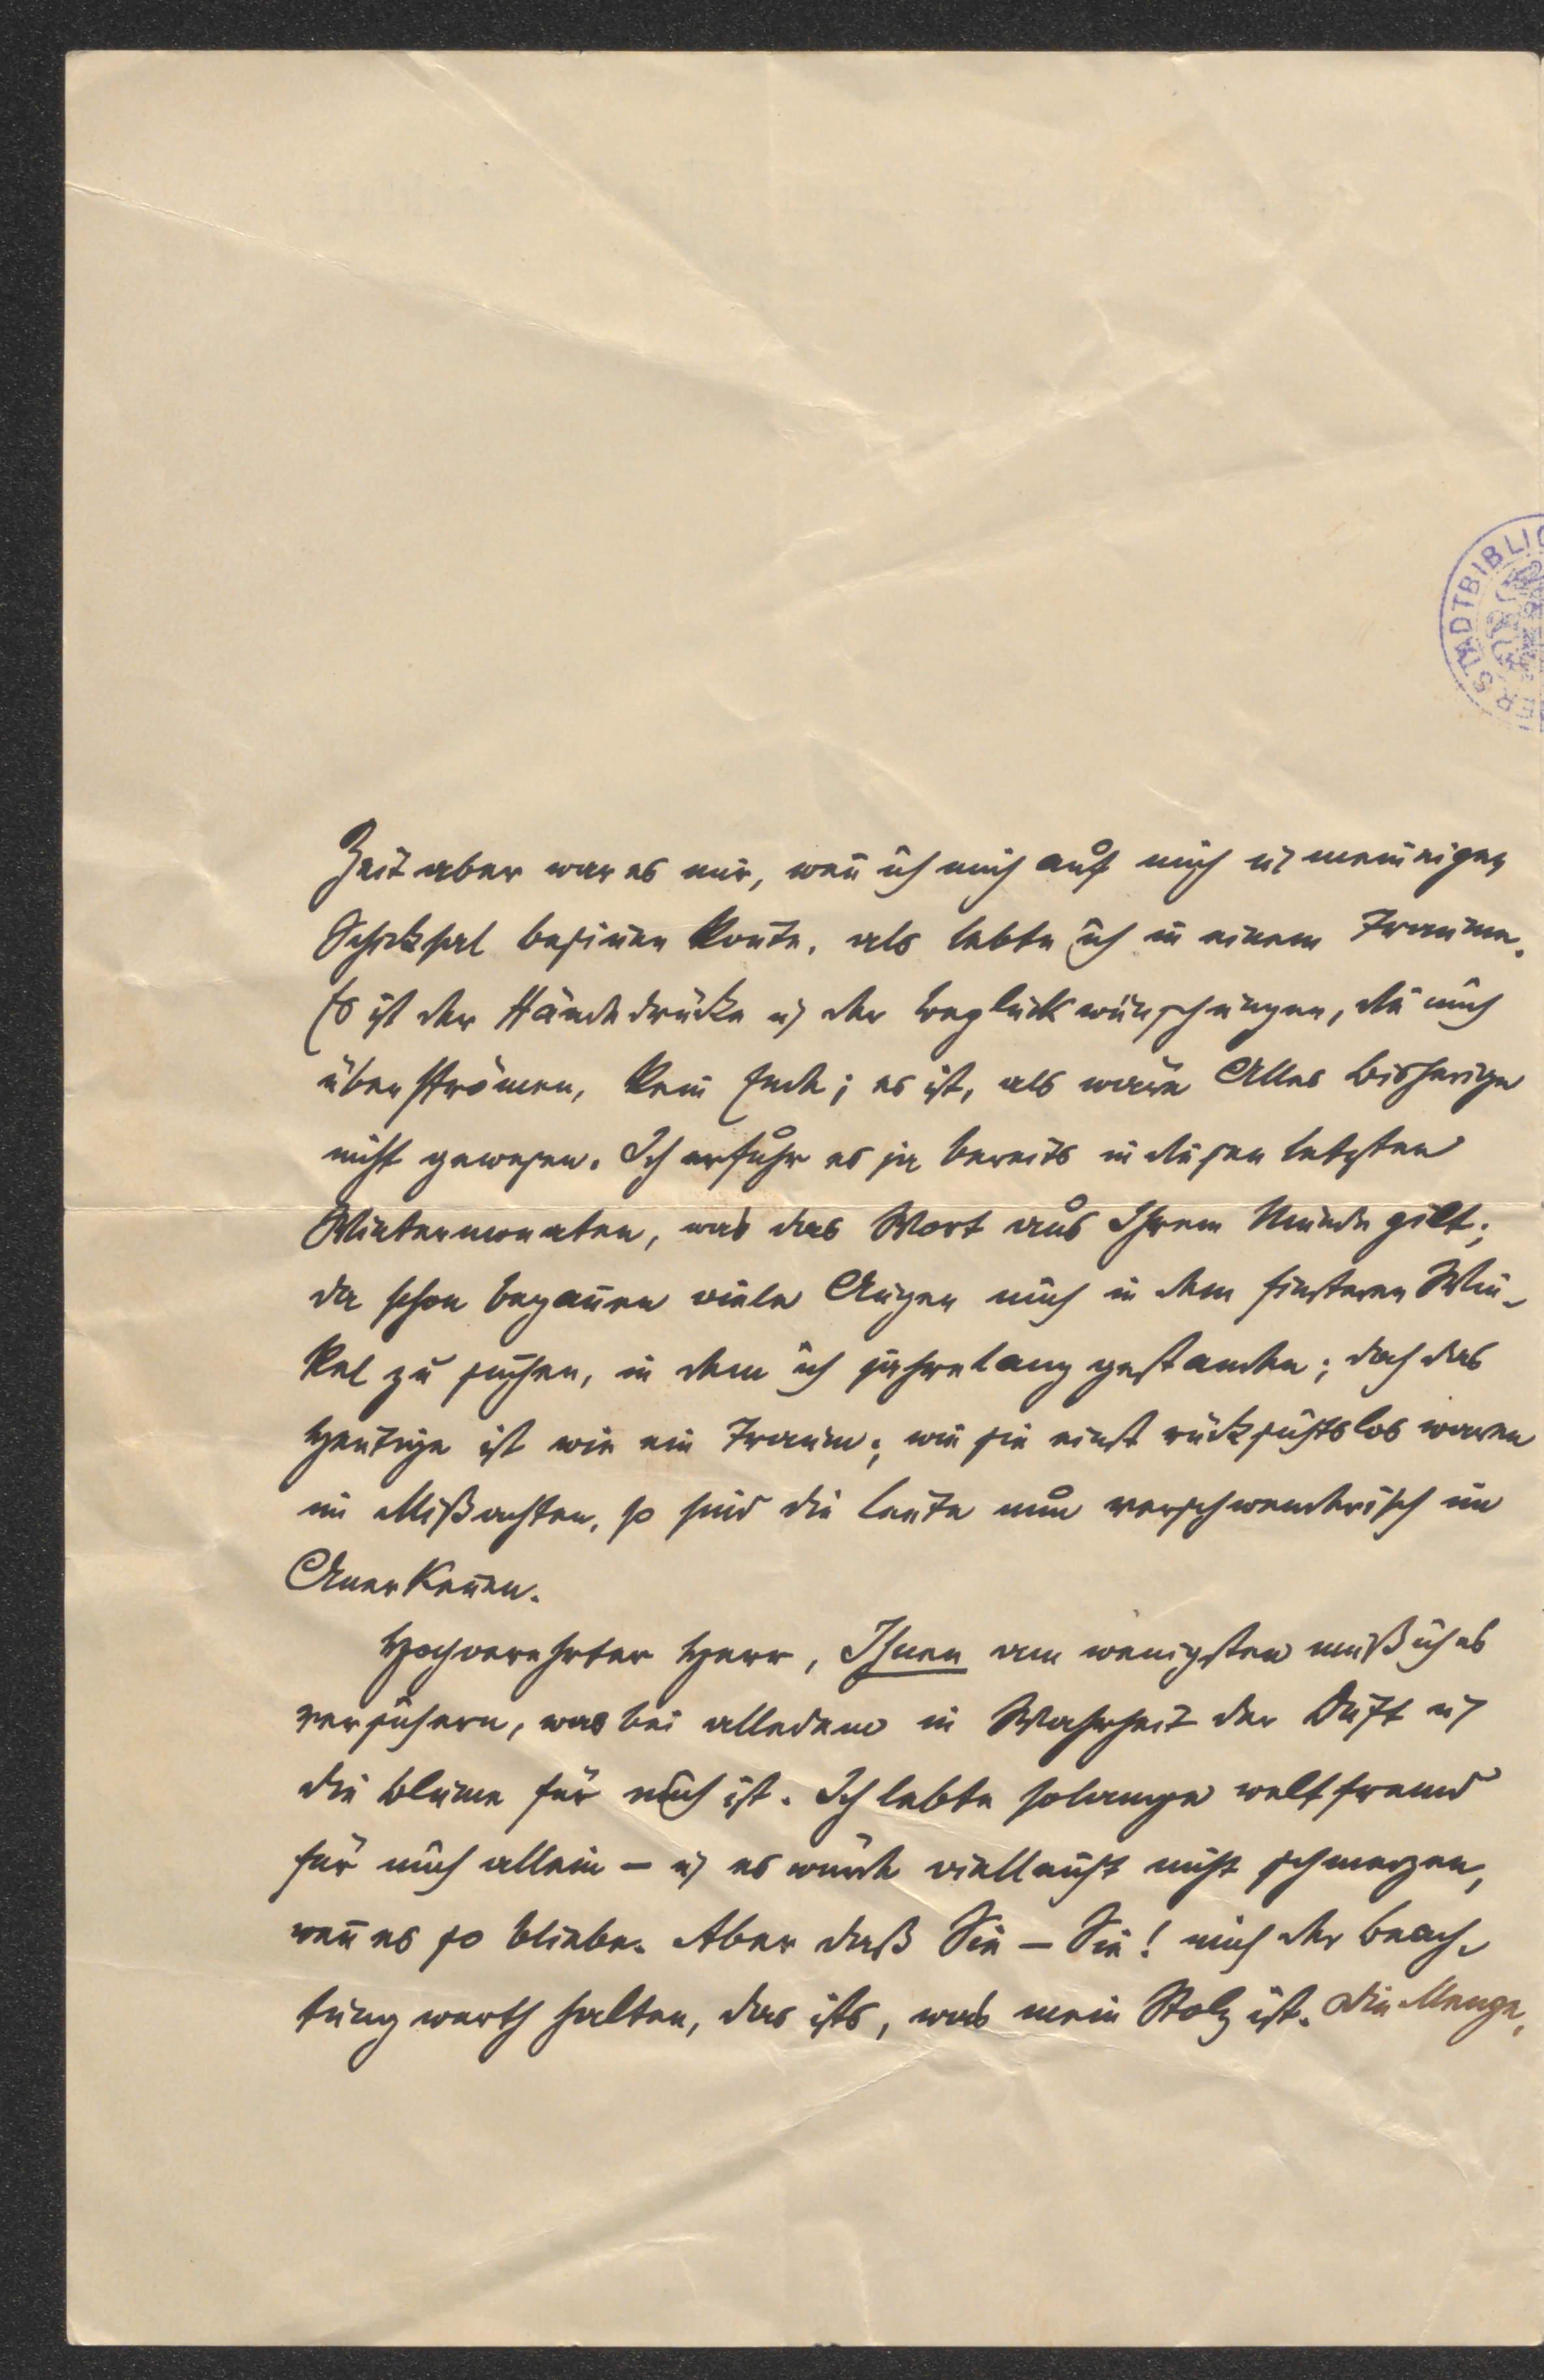 STADTBIBLIO
Zeit aber war es mir, wen̅ ich mich auf mich u. mein eigen
Schicksal besin̅en kon̅te, als lebte ich in einem Traume.
Es ist der Händedrücke u. der Beglückwünschungen, die mich
überströmen, kein Ende; es ist, als wäre Alles bisherige
nicht gewesen. Ich erfuhr es ja bereits in diesen letzten
Wintermonaten, was das Wort aus Ihrem Munde gilt;
da schon began̅en viele Augen mich in dem finsteren Win-
kel zu suchen, in dem ich jahrelang gestanden; doch das
Heutige ist wie ein Traum; wie sie einst rücksichtslos waren
im Mißachten, so sind die Leute nun verschwenderisch im
Anerken̅en.
Hochverehrter Herr, Ihnen am wenigsten muß ich es
versichern, was bei alledem in Wahrheit der Duft u.
die Blume für mich ist. Ich lebte solange weltfremd
für mich allein – u. es würde vielleicht nicht schmerzen,
wen̅ es so bliebe. Aber daß Sie – Sie! mich der Beach-
tung werth halten, das ists, was mein Stolz ist. Die Menge,